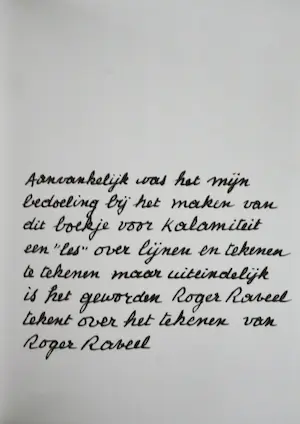 Aanvankelijk was het mijn
bedoeling bij het maken van
dit boekje voor Kalamiteit
een "les" over lijnen en tekenen
te tekenen maar uiteindelijk
is het geworden Roger Raveel
tekent over het tekenen van
Roger Raveel